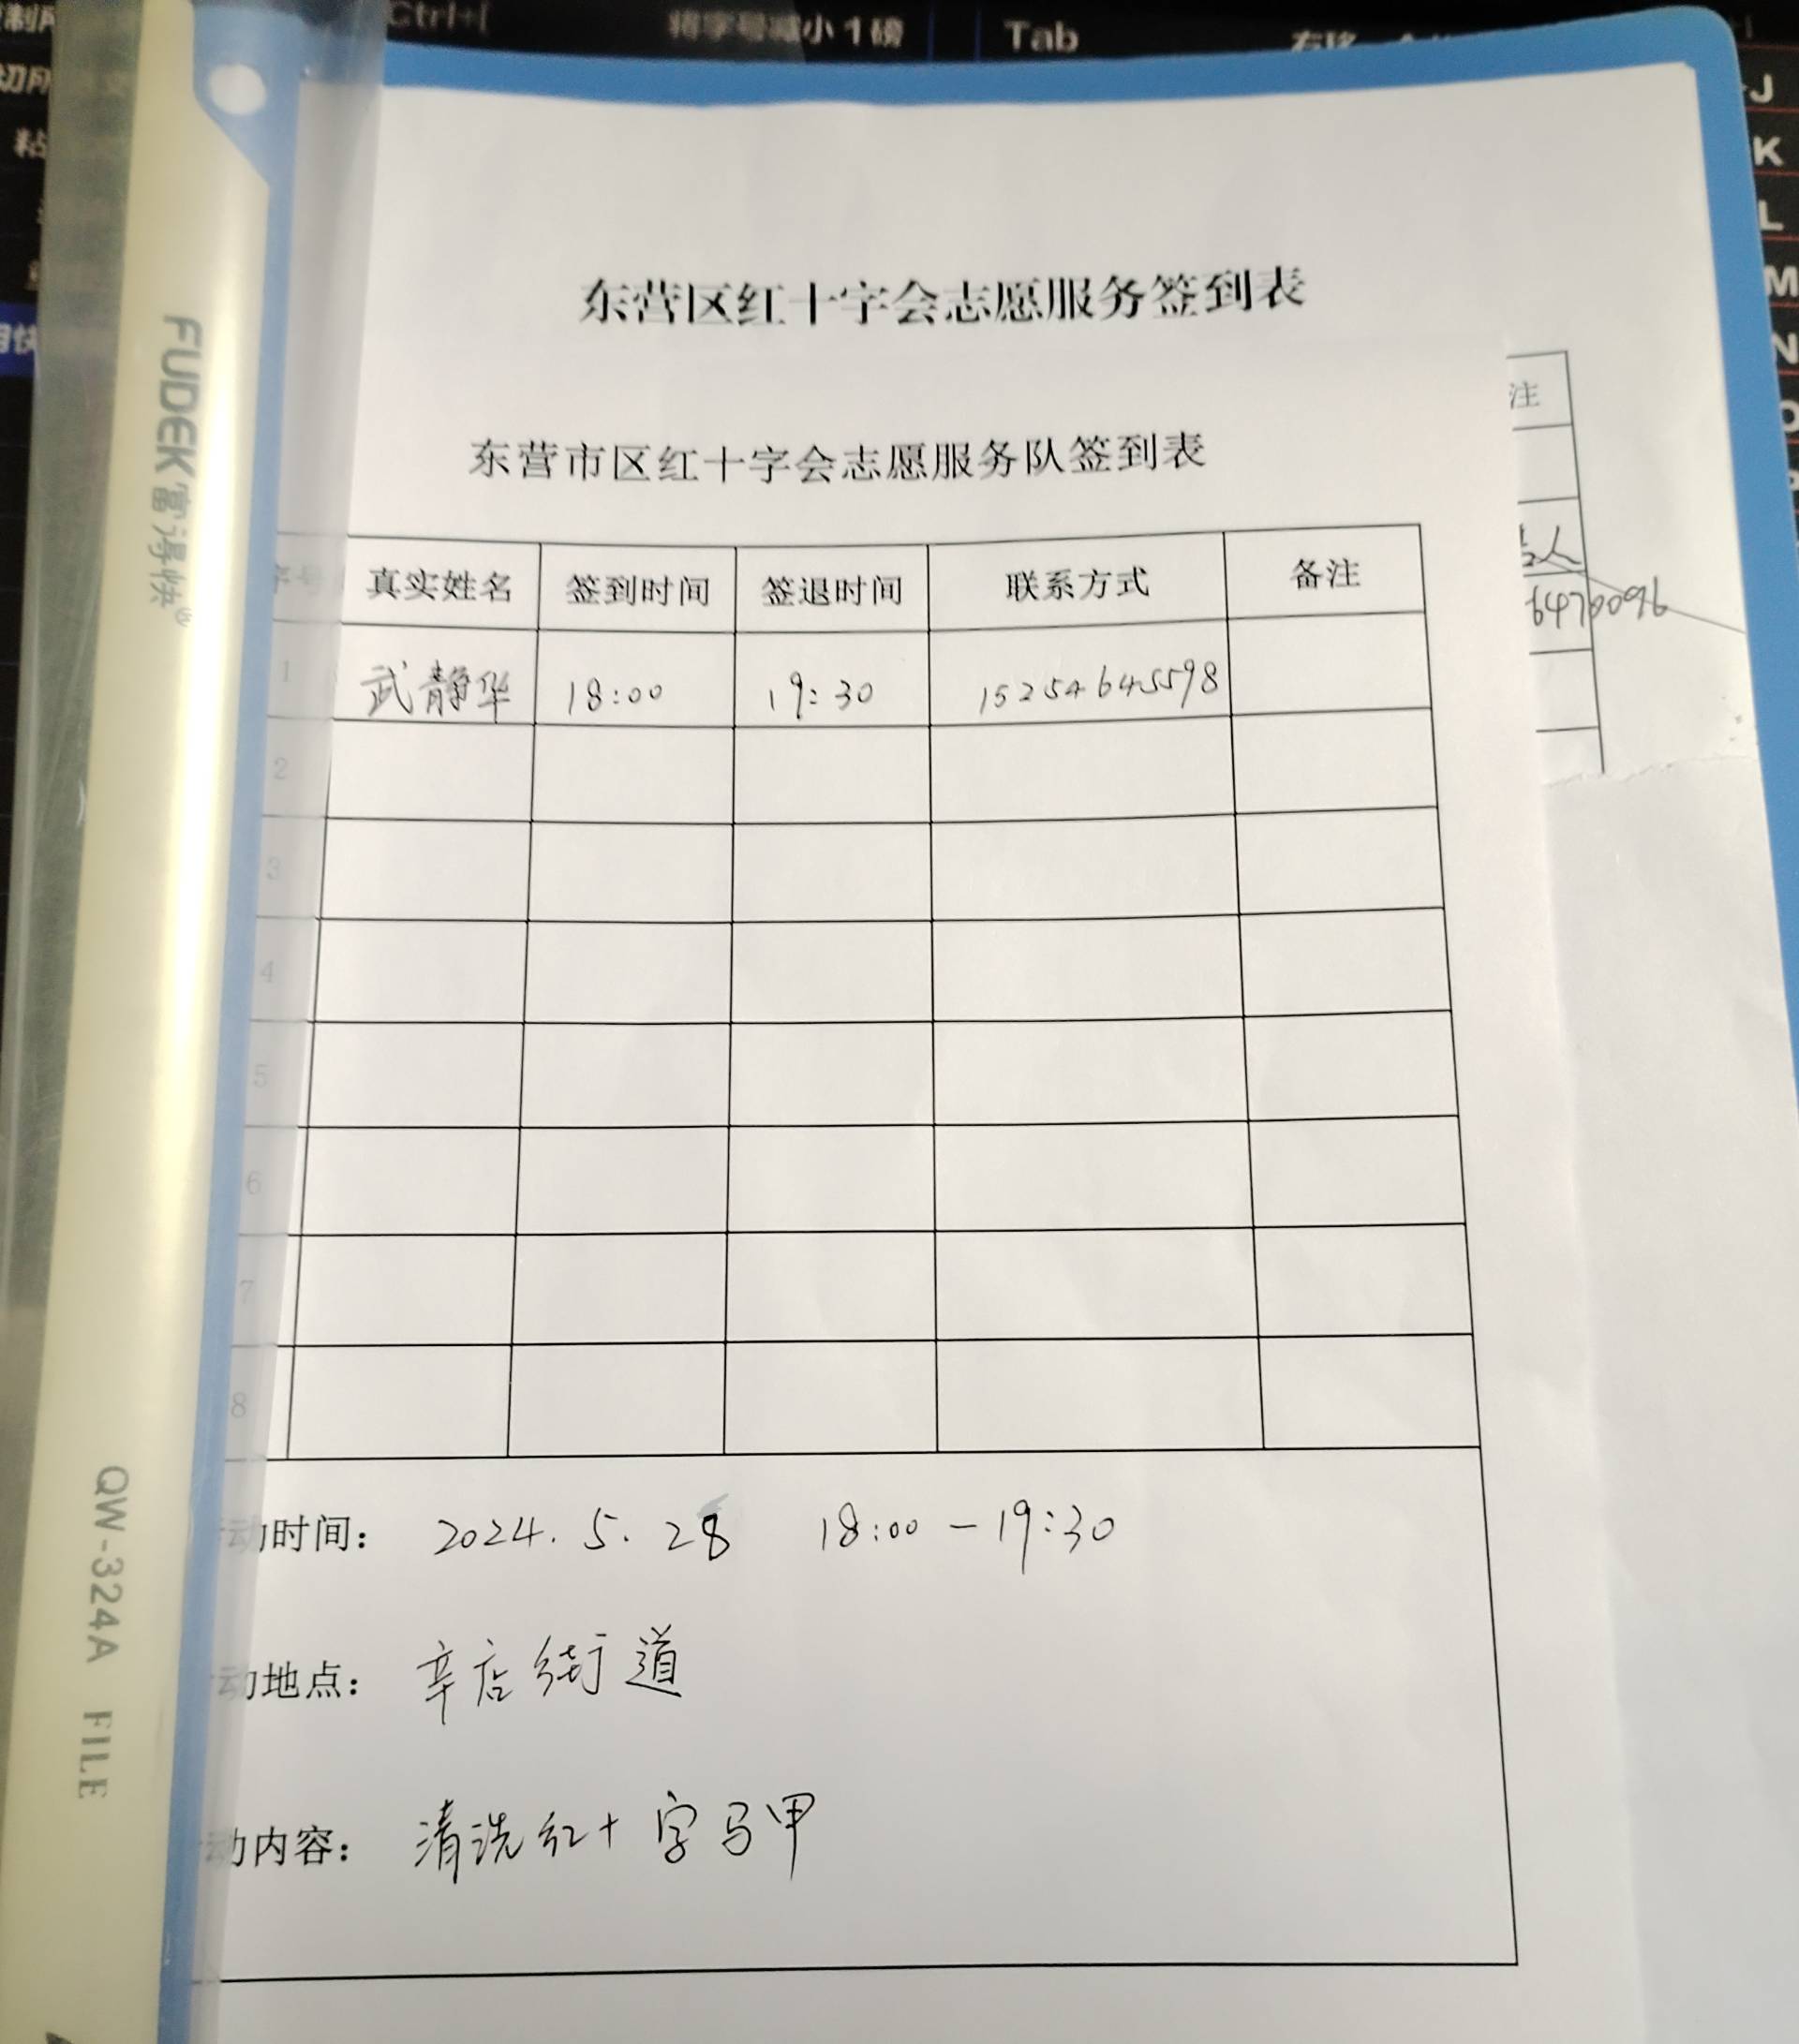 Ctrl+[
将字号减小1磅
Tab
J
K
L
M
N
FUDEK富得快
QW-324A FILE
东营区红十字会志愿服务签到表
注
人
6470096
东营市区红十字会志愿服务队签到表
序号 真实姓名 签到时间 签退时间 联系方式 备注
1 武静华 18:00 19:30 15254645598
2
3
4
5
6
7
8
动时间: 2024.5.28 18:00-19:30
动地点: 辛店街道
动内容: 清洗红十字马甲